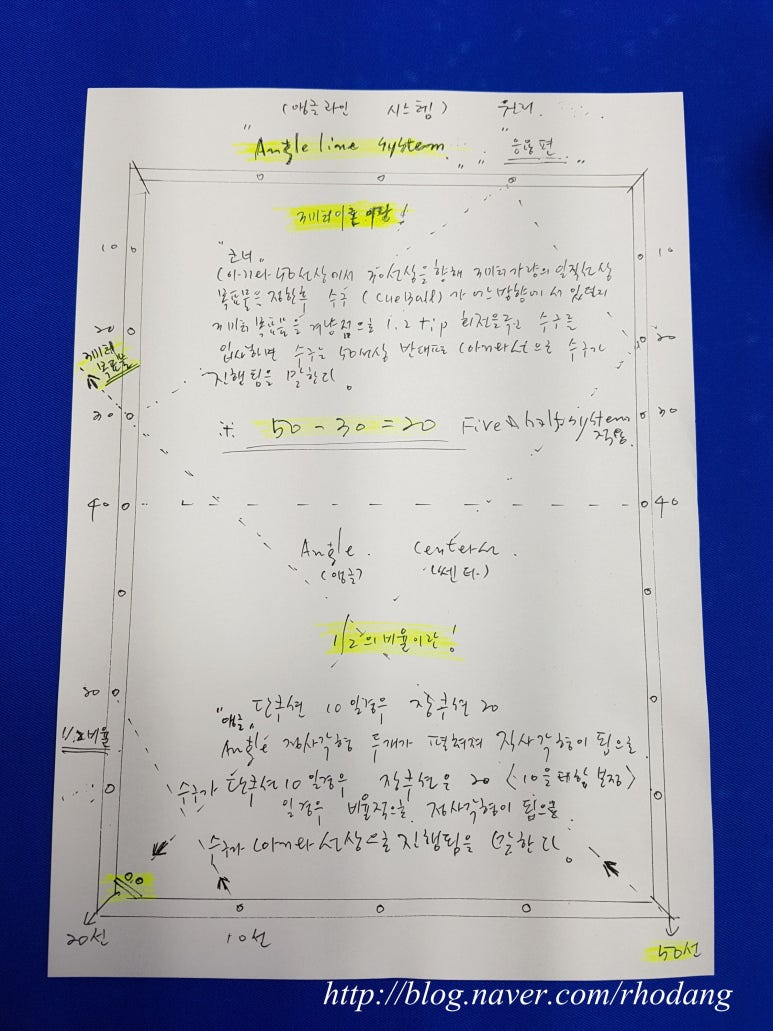 (앵글라인 시스템) 원리
"Angle line system "응용편"
3미터이론 이란!
"코너"
(아끼와 50선상에서 30선상을 향해 3미터가량의 일직선상
목표물을 정한후 수구 (Cue Ball)가 어느방향에 서 있던지
3미터 목표물을 겨냥점으로 1.2 tip 회전을주고 수구를
입사하면 수구는 50선상 반대편 (아끼와선으로 수구가
진행됨을 말한다.
※ 50 - 30 = 20 Five & half system
적용.
10
20
3미터
목표물
30
40
30
1/2비율
10
20
30
40
Angle. Center선.
(앵글) (쎈터.)
1/2의 비율이란!
"앵글" 단축선 10 일경우 장축선 20
Angle 정사각형 두개가 펼쳐져 직사각형이 됨으로
수구가 단축선 10 일경우 장축선은 20 <10을 포함 보정>
일경우 비율적으로 정사각형이 됨으로
수구가 (아끼와 선상으로 진행됨을 말한다.
20선
10선
50선
http://blog.naver.com/rhodang